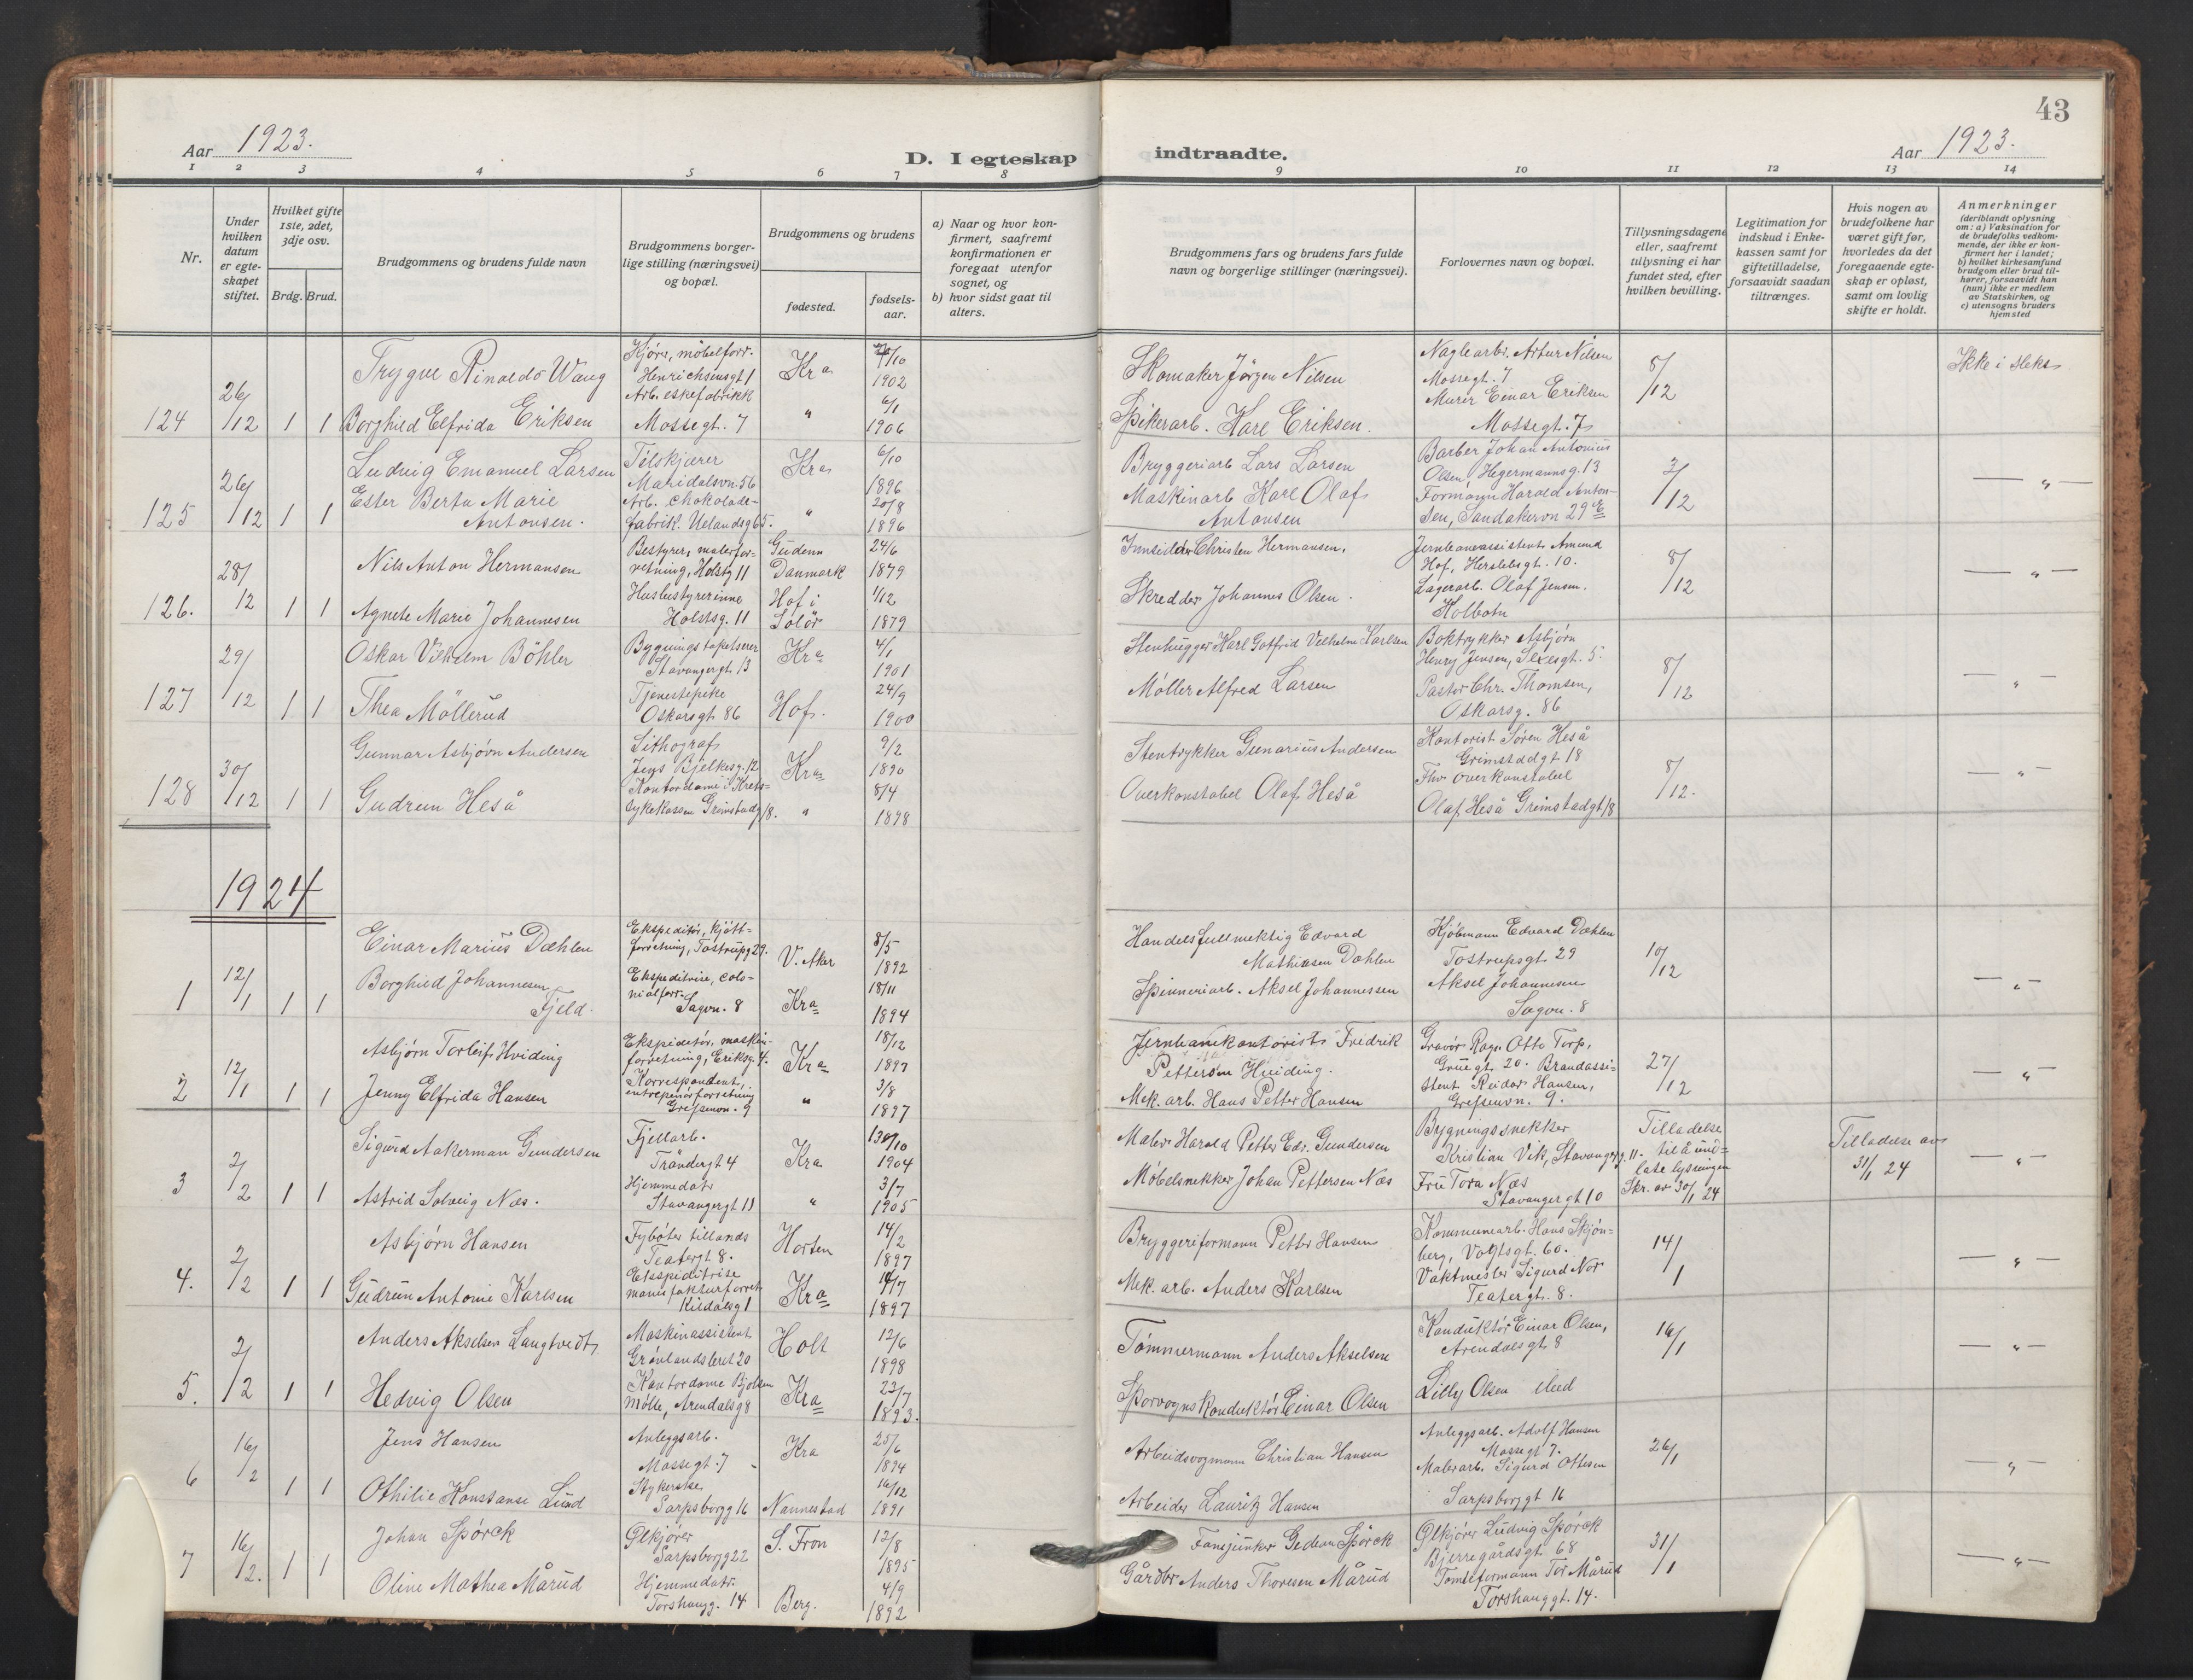 43
Aar 1923.
D. I egteskap indtraadte.
Aar 1923.
1 2 3 4 5 6 7 8 9 10 11 12 13 14
Nr.
Under hvilken datum er egteskapet stiftet.
Hvilket gifte 1ste, 2det, 3dje osv.
Brdg. Brud.
Brudgommens og brudens fulde navn
Brudgommens borgerlige stilling (næringsvei) og bopæl.
Brudgommens og brudens
fødested.
fødselsaar.
a) Naar og hvor konfirmert, saafremt konfirmationen er foregaat utenfor sognet, og
b) hvor sidst gaat til alters.
Brudgommens fars og brudens fars fulde navn og borgerlige stillinger (næringsvei).
Forlovernes navn og bopæl.
Tillysningsdagene eller, saafremt tillysning ei har fundet sted, efter hvilken bevilling.
Legitimation for indskud i Enkekassen samt for giftetilladelse, forsaavidt saadan tiltrænges.
Hvis nogen av brudefolkene har været gift før, hvorledes da det foregaaende egteskap er opløst, samt om lovlig skifte er holdt.
Anmerkninger (deriblandt oplysning om: a) Vaksination for de brudefolks vedkommende, der ikke er konfirmert her i landet; b) hvilket kirkesamfund brudgom eller brud tilhører, forsaavidt han (hun) ikke er medlem av Statskirken, og c) utensogns bruders hjemsted
124 26/12 1 1
Trygve Rinaldo Wang
Kjører, møbelforr. Henrichsensgt 1
Kra /10 1902
Skomaker Jørgen Nilsen
Naglearb. Artur Nilsen Mossegt. 7
8/12
Ikke i slekt
Borghild Elfrida Eriksen
Arb. eskefabrikk Mossegt. 7
" 6/1 1906
Spikerarb. Karl Eriksen.
Murer Einar Eriksen Mossegt. 7
125 26/12 1 1
Ludvig Emanuel Larsen
Maridalsvn. 56
Kra 6/10 1896
Bryggeriarb Lars Larsen
Barber Johan Antonius Olsen, Hegermannsg. 13
/12
— " —
Ester Berta Marie Antonsen.
Arb. chokoladefabrik. Uelandsg 65.
" 20/8 1896
Maskinarb Karl Olaf Antonsen
Formann Harald Antonsen, Sandakervn 29 E
126. 28/12 1 1
Nils Anton Hermansen
Bestyrer, malerforretning, Holstg 11
Danmark 24/6 1879
Christen Hermansen,
Jernbaneassistent Amund Hof, Herslebsgt. 10.
8/12
— " —
Agnete Marie Johannesen
Husbestyrerinne Holstsg. 11
Hof i Solør 1/12 1879
Skredder Johannes Olsen.
Lagerarb. Olaf Jensen. Kolbotn
127 29/12 1 1
Oskar Vilhelm Böhler
Bygningstapetserer Stavangergt. 13
Kra 4/1 1901
Stenhugger Karl Gotfrid Vilhelm Karlsen
Boktrykker Asbjørn Henry Jensen, Sexesgt. 5.
8/12
— " —
Thea Möllerud
Tjenestepike Oskarsgt. 86
Hof. 24/9 1900
Møller Alfred Larsen
Pastor Chr. Thomsen, Oskarsg. 86
128 30/12 1 1
Gunnar Asbjørn Andersen
Lithograf Jens Bjelkesg. 12
Kra 9/2 1890
Stentrykker Gunarius Andersen
Kontorist Søren Heså Grimstadgt 18
8/12.
— " —
Gudrun Heså
Kontordame i Kretssykekassen Grimstadg 18.
" 8/4 1898
Overkonstabel Olaf Heså
Fhv overkonstabel Olaf Heså Grimstadgt 18
1924
1 12/1 1 1
Einar Marius Dæhlen
Ekspeditør, kjøttforretning, Tostrupg 29.
V. Aker 8/5 1892
Handelsfullmektig Edvard Mathiesen Dæhlen
Kjøbmann Edvard Dæhlen Tostrupsgt 29
10/12
— " —
Borghild Johannesen Fjeld.
Ekspeditrise, colonialforr. Sagvn. 8
Kra 18/11 1894
Spinneriarb. Aksel Johannessen
Aksel Johannesen Sagvn. 8
2 12/1 1 1
Asbjørn Torleif Hviding
Ekspeditør, maskinforretning, Eriksg. 4.
Kra 18/12 1897
Jernbanekontorist Fredrik Pettersen Hviding.
Gravør Ragn. Otto Torp, Grüegt. 20.
27/12
— " —
Jenny Elfrida Hansen
Korrespondent, entrepenørforretning Grefsenvn. 9
" 3/8 1897
Mek. arb. Hans Petter Hansen
Brandassistent Reidar Hansen, Grefsenvn. 9.
3 2/2 1 1
Sigurd Aakerman Gundersen
Fjellarb. Trøndergt 4
Kra 1904
Maler Harald Petter Edv. Gundersen
Bygningssnekker Kristian Vik, Stavangerg. 11
Tilladelse til å undlate lysningen Skr. av 30/1 24
Tilladelse av 31/1 24
— " —
Astrid Solveig Næs.
Hjemmedatr Stavangergt 11
" 3/7 1905
Møbelsnekker Johan Pettersen Næs
Fru Tora Næs Stavangergt 10
4. 2/2 1 1
Asbjørn Hansen
Fyrbøter tillands Teatergt 8.
Horten 14/2 1897
Bryggeriformann Petter Hansen
Kommunearb. Hans Skjønberg, Vogtsgt. 60.
14/1
— " —
Gudrun Antonie Karlsen
Ekspeditrise manufakturforret. Kildalsg 1
Kra /7 1897
Mek. arb. Anders Karlsen
Vaktmester Sigurd Nor Teatergt. 8.
5. 2/2 1 1
Anders Akselsen Langtvedt
Maskinassistent Grønlandsleret 20
Holt 12/6 1898
Tømmermann Anders Akselsen
Konduktør Einar Olsen, Arendalsgt 8
16/1
— " —
Hedvig Olsen
Kontordame Bjølsen Mølle, Arendalsg 8
Kra 23/7 1893.
Sporvognskonduktør Einar Olsen
Lilly Olsen
6 16/2 1 1
Jens Hansen
Anleggsarb. Mossegt. 7
Kra 25/6 1894
Arbeidsvogmann Christian Hansen
Anleggsarb. Adolf Hansen Mossegt 7.
26/1
— " —
Othilie Konstanse Lund
Sarpsborgg 16
Nannestad 16/12 1891
Arbeider Lauritz Hansen
Malerarb. Sigurd Ottesen Sarpsborggt 16
7 16/2. 1 1
Johan Spørck
Ølkjører Sarpsborgg 22
S. Fron 12/8 1895
Fanejunker Gedean Spørck
Ølkjører Ludvig Spørck Bjerregårdsgt 68
31/1
— " —
Oline Mathea Mårud
Hjemmedatr. Torshaugg. 14
Berg. 4/9 1892
Gårdbr Anders Thoresen Mårud
Tomteformann Tor Mårud Torshauggt. 14.